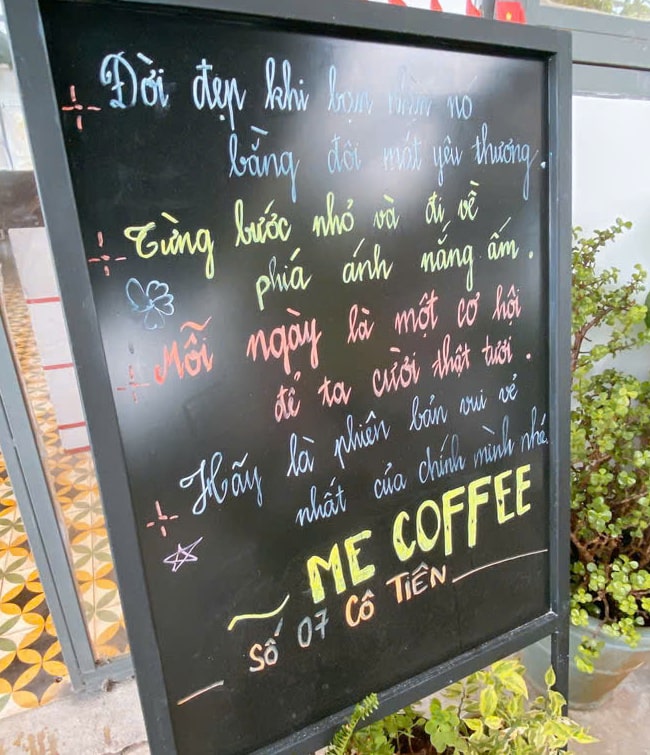 Đời đẹp khi bạn nhìn nó
bằng đôi mắt yêu thương.
Từng bước nhỏ và đi về
phía ánh nắng ấm.
Mỗi ngày là một cơ hội
để ta cười thật tươi.
Hãy là phiên bản vui vẻ
nhất của chính mình nhé.
ME COFFEE
Số 07 CÔ TIÊN